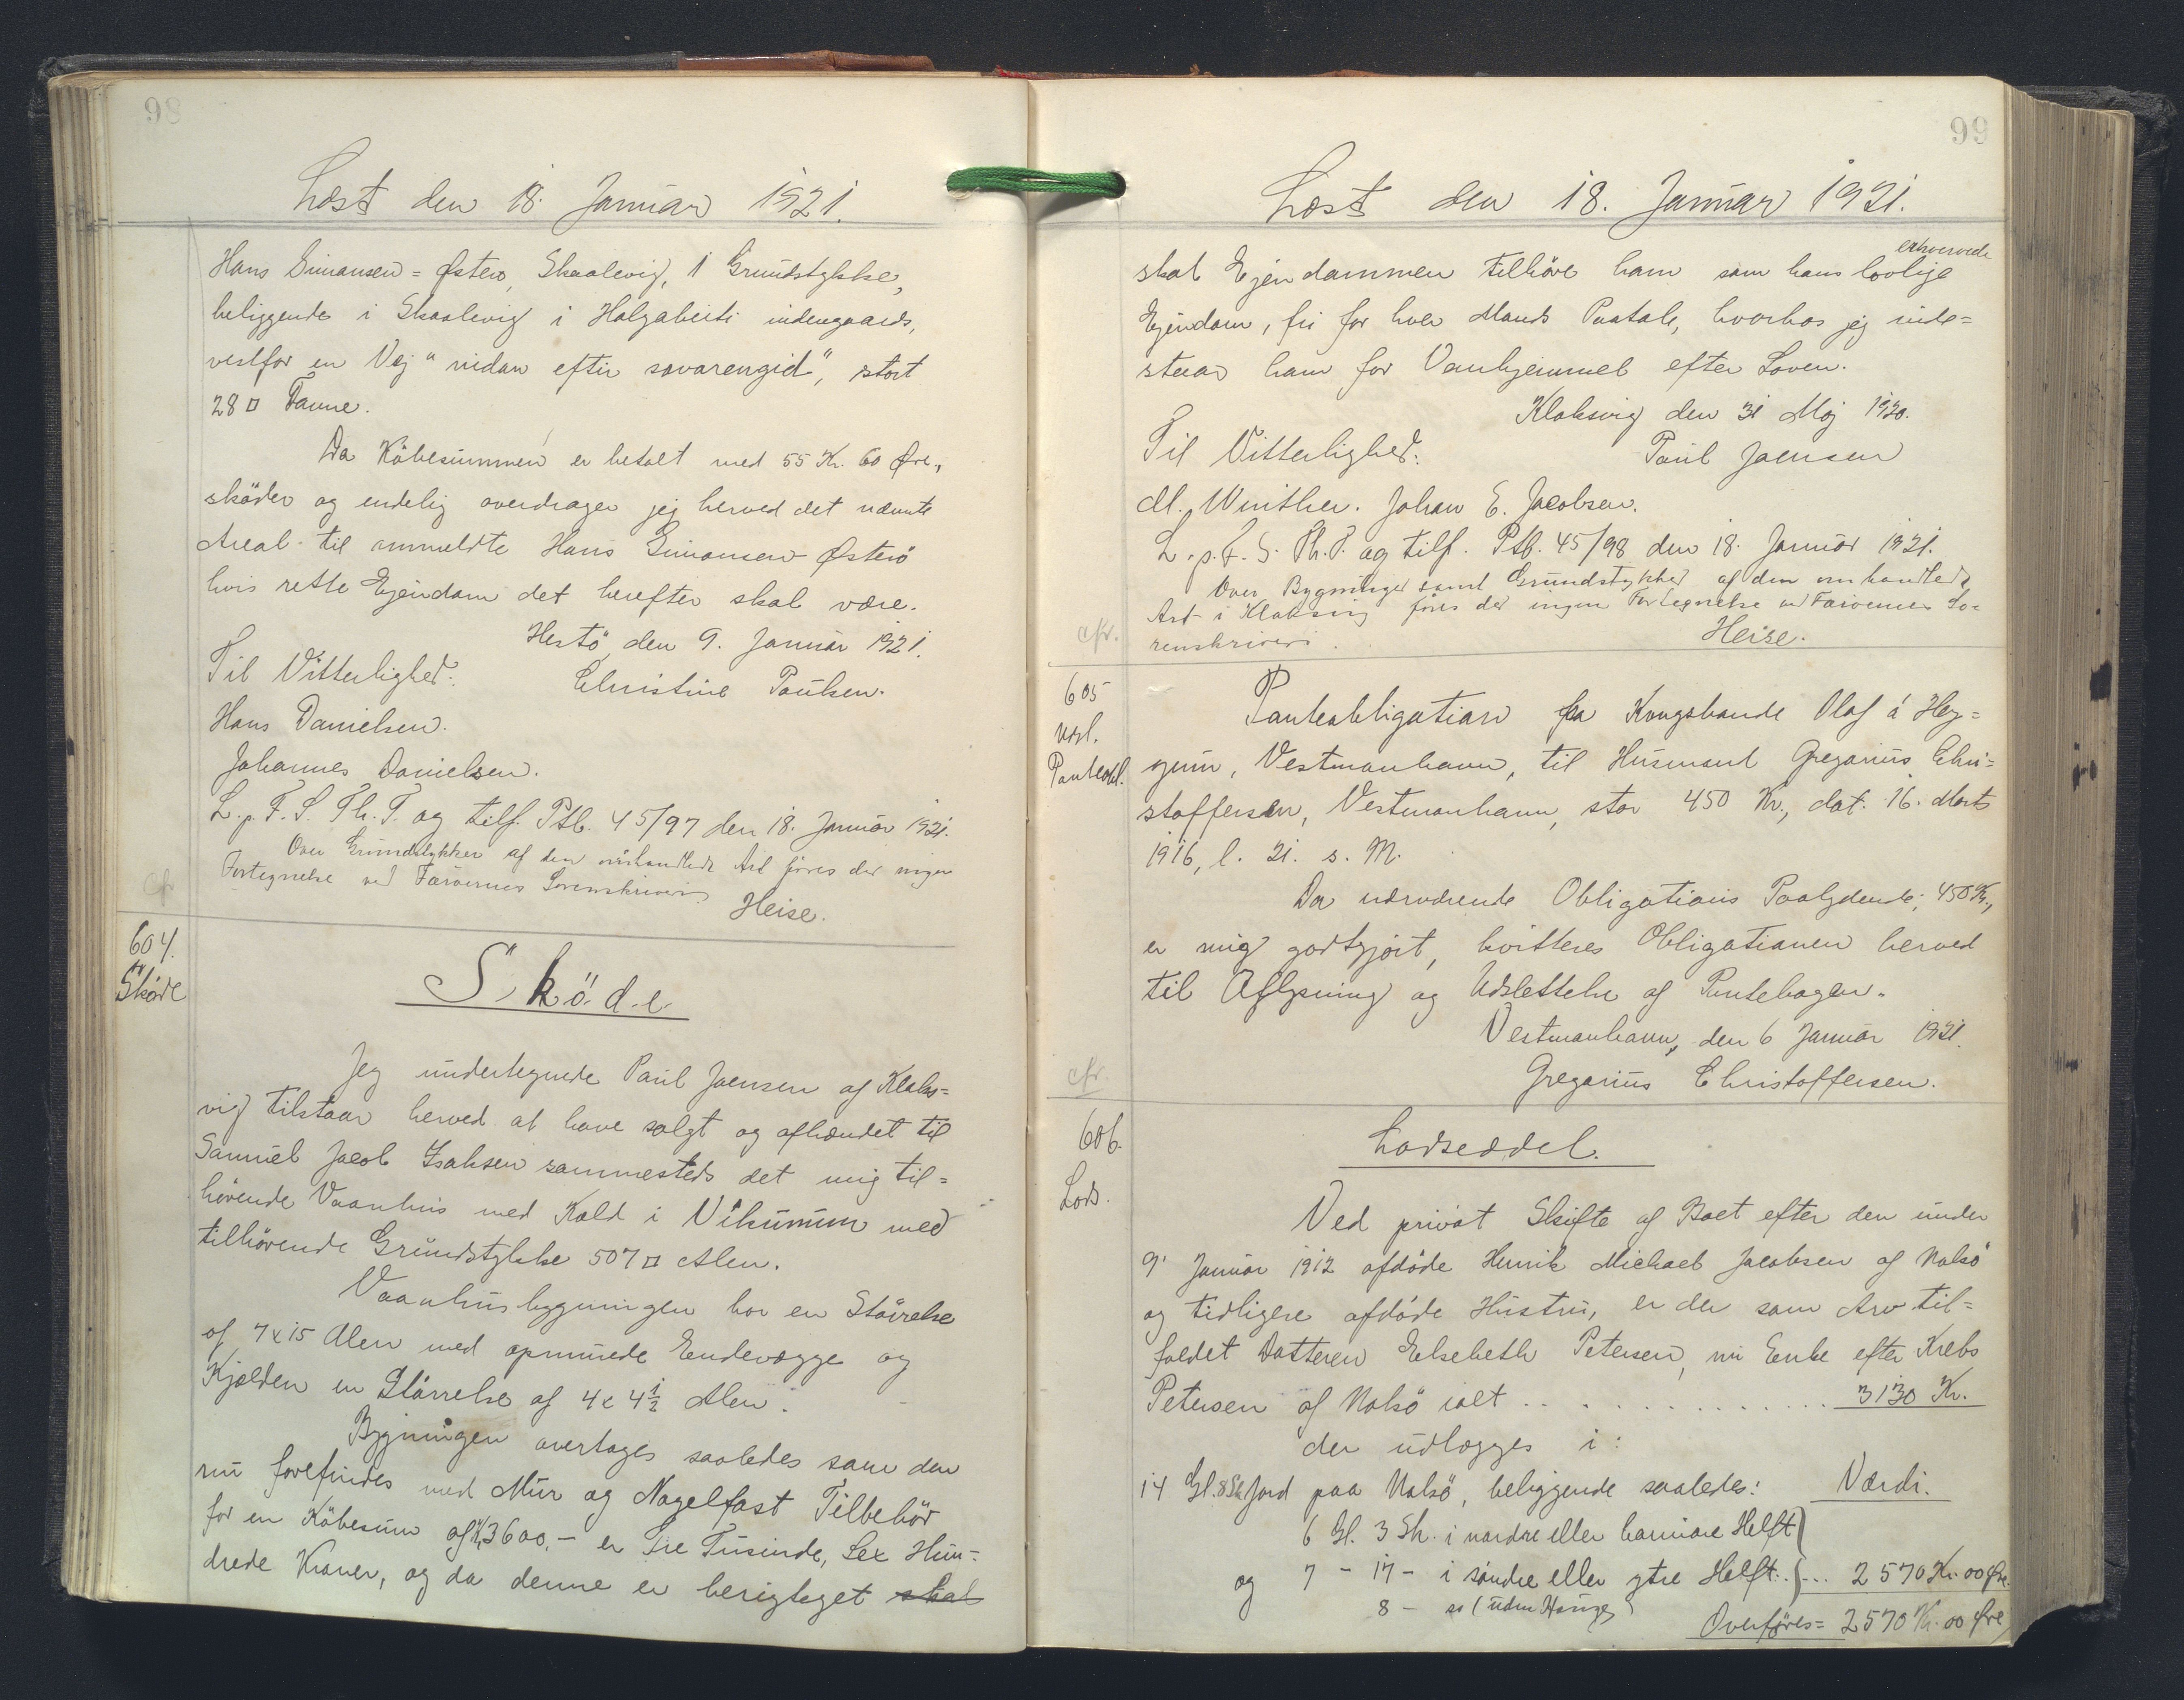 98
Læst den 18. Januar 1921.
Hans Simonsen = Østerø, Skaalevig, 1 Grundstykke,
beliggende i Skaalevig i Halgabeiti indengaards,
vestfor en Vej "nidan eftir
28 □ Favne.
Da Köbesummen er betalt med 55 Kr. 60 Øre.,
sköder og endelig overdrager jeg herved det nævnte
Areal til anmeldte Hans Simonsen Østerö
hvis rette Ejendom det herefter skal være.
Hestö, den 9. Januar 1921.
Til Vitterlighed:
Christine Poulsen.
Hans Danielsen.
Johannes Danielsen.
L. p. F. S. Th. T. og tilf. Ptb. 45/97 den 18. Januar 1921.
Over Grundstykker af den omhandlede Art föres der ingen
cfr
Fortegnelse ved Færøernes Sorenskriveri
Heise.
604.
Sköde
Sköde
Jeg undertegnede Poul Joensen af Klaks=
vig tilstaar herved at have solgt og afhændet til
Samuel Jacob Isaksen sammesteds det mig til=
hörende Vaanhus med Kæld i Vikunum med
tilhörende Grundstykke 507 □ Alen.
Vaanhusbygningen har en Störrelse
af 7 x 15 Alen med opmurede Endevægge og
Kjælden en Störrelse af 4 x 4 1/2 Alen.
Bygningen overtages saaledes som den
nu forefindes med Mur og Nagelfast Tilbehör
for en Köbesum af Kr. 3600,- er Tre Tusinde, Sex Hun-
drede Kroner, og da denne er berigtiget skal
99
Læst den 18. Januar 1921.
erhvervede
skal Ejendommen tilhöre ham som hans lovlige
Ejendom, fri for hver Mands Paatale, hvorhos jeg inde=
staar ham for Vanhjemmel efter Loven.
Klaksvig den 31 Maj 1920.
Til Vitterlighed:
Poul Joensen
M. Winther. Johan E. Jacobsen.
L. p. F. S. Th. T. og tilf. Ptb. 45/98 den 18. Januar 1921.
Over Bygninger samt Grundstykker af den omhandlede
Art i Klaksvig föres der ingen Fortegnelse ved Færøernes So-
cfr.
renskriveri.
Heise.
605
Pantobl.
Panteobligation fra Kongsbonde Olaf á Hey=
gum, Vestmanhavn, til Husmand Gregorius Chri=
stoffersen, Vestmanhavn, stor 450 Kr., dat. 16. Marts
1916, l. 21. s. M.
Da nærværende Obligations Paalydende, 450 Kr.,
er mig godtgjort, kvitteres Obligationen herved
til Aflysning og Udslettelse af Pantebogen.
Vestmanhavn, den 6 Januar 1921.
cfr.
Gregorius Christoffersen.
606.
Lods.
Lodseddel.
Ved privat Skifte af Boet efter den under
9' Januar 1912 afdöde Henrik Michael Jacobsen af Nolsö
og tidligere afdöde Hustru, er der som Arv til=
faldet Datteren Elsebeth Petersen, nu Enke efter Krebs
Petersen af Nolsö ialt . . . . . . . . . . 3130 Kr.
der udlægges i:
14 Gl. 8 Sk. Jord paa Nolsö, beliggende saaledes:
Værdi.
6 Gl. 3 Sk. i nordre eller Helft
og 7 - 17 - i söndre eller ytre Helft. . . . . 2570 Kr. 00 Øre.
8 - (uden
Overföres = 2570 Kr. 00 Øre